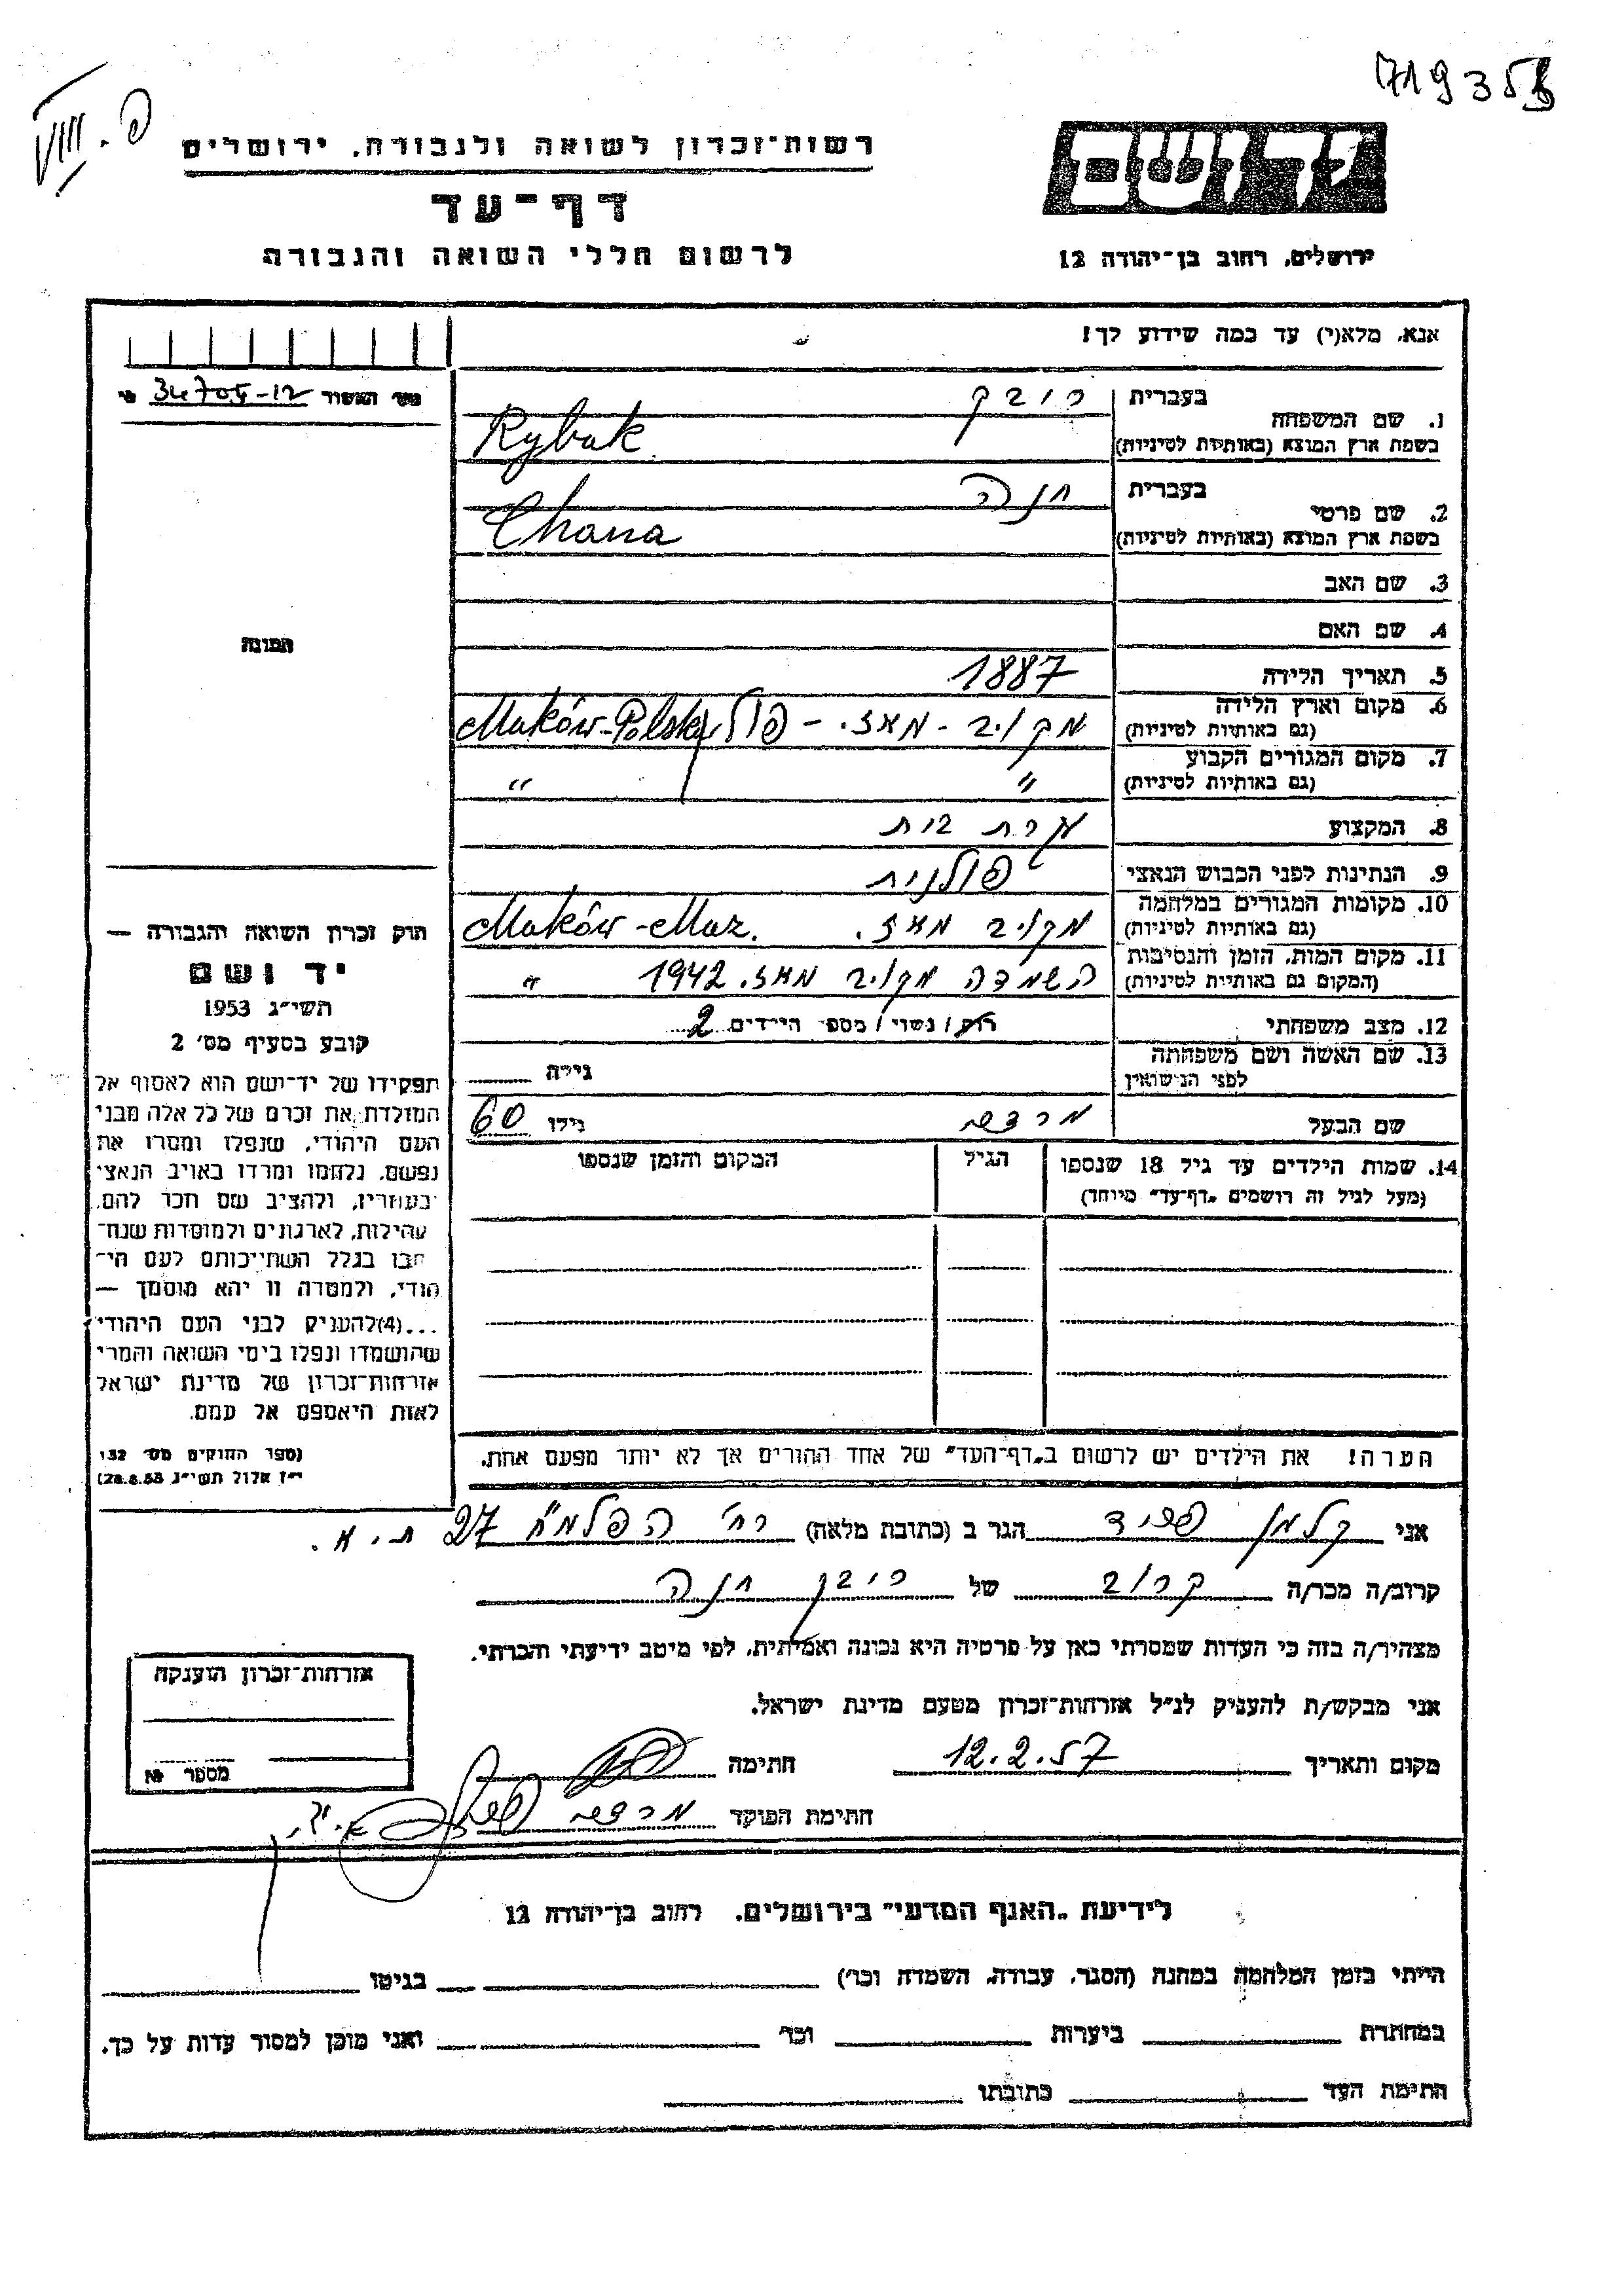 רשות־זכרון לשואה ולגבורה, ירושלים
דף־עד
לרשום חללי השואה והגבורה
ידושם
ירושלים, רחוב בן־יהודה 12
אנא, מלא(י) עד כמה שידוע לך!
1. שם המשפחה
בעברית ריבק
בשפת ארץ המוצא (באותיות לטיניות) Rybak
2. שם פרטי
בעברית חנה
בשפת ארץ המוצא (באותיות לטיניות) Chana
3. שם האב
4. שם האם
5. תאריך הלידה 1887
6. מקום וארץ הלידה מקוב - מאז. - פולין Maków-Polska
(גם באותיות לטיניות)
7. מקום המגורים הקבוע " "
(גם באותיות לטיניות)
8. המקצוע עקרת בית
9. הנתינות לפני הכבוש הנאצי פולנית
10. מקומות המגורים במלחמה מקוב מאז. Maków-Maz.
(גם באותיות לטיניות)
11. מקום המות, הזמן והנסיבות השמדה מקוב מאז. 1942 "
(המקום גם באותיות לטיניות)
12. מצב משפחתי רוק/נשוי/מספר הילדים 2
13. שם האשה ושם משפחתה
לפני הנישואין גילה
שם הבעל מרדכי גילו 60
14. שמות הילדים עד גיל 18 שנספו הגיל המקום והזמן שנספו
(מעל לגיל זה רושמים "דף־עד" מיוחד)
הערה! את הילדים יש לרשום ב"דף־העד" של אחד ההורים אך לא יותר מפעם אחת.
34705-12
התמונה
חוק זכרון השואה והגבורה —
יד ושם
תשי״ג 1953
קובע בסעיף מס׳ 2
תפקידו של יד־ושם הוא לאסוף אל
המולדת את זכרם של כל אלה מבני
העם היהודי, שנפלו ומסרו את
נפשם, נלחמו ומרדו באויב הנאצי
ובעוזריו, ולהציב שם וזכר להם,
לקהילות, לארגונים ולמוסדות שנח־
רבו בגלל השתייכותם לעם הי־
הודי, ולמטרה זו יהא מוסמך —
...(4) להעניק לבני העם היהודי
שהושמדו ונפלו בימי השואה והמרי
אזרחות־זכרון של מדינת ישראל
לאות היאספם אל עמם.
(ספר החוקים מס׳ 132
י״ז אלול תשי״ג 28.8.53)
אני קלמן הגר ב (כתובת מלאה) רח׳ הפלמ״ח 27 ת.א.
קרוב/ה מכר/ה קרוב של ריבק חנה
מצהיר/ה בזה כי העדות שמסרתי כאן על פרטיה היא נכונה ואמיתית, לפי מיטב ידיעתי והכרתי.
אני מבקש/ת להעניק לנ״ל אזרחות־זכרון מטעם מדינת ישראל.
מקום ותאריך 12.2.57 חתימה
חתימת הפוקד מרדכי
אזרחות־זכרון הוענקה
מספר №
לידיעת "האגף המדעי" בירושלים, רחוב בן־יהודה 12
הייתי בזמן המלחמה במחנה (הסגר, עבודה, השמדה וכו׳) בגיטו
במחתרת ביערות וכו׳ ואני מוכן למסור עדות על כך.
חתימת העד כתובתו